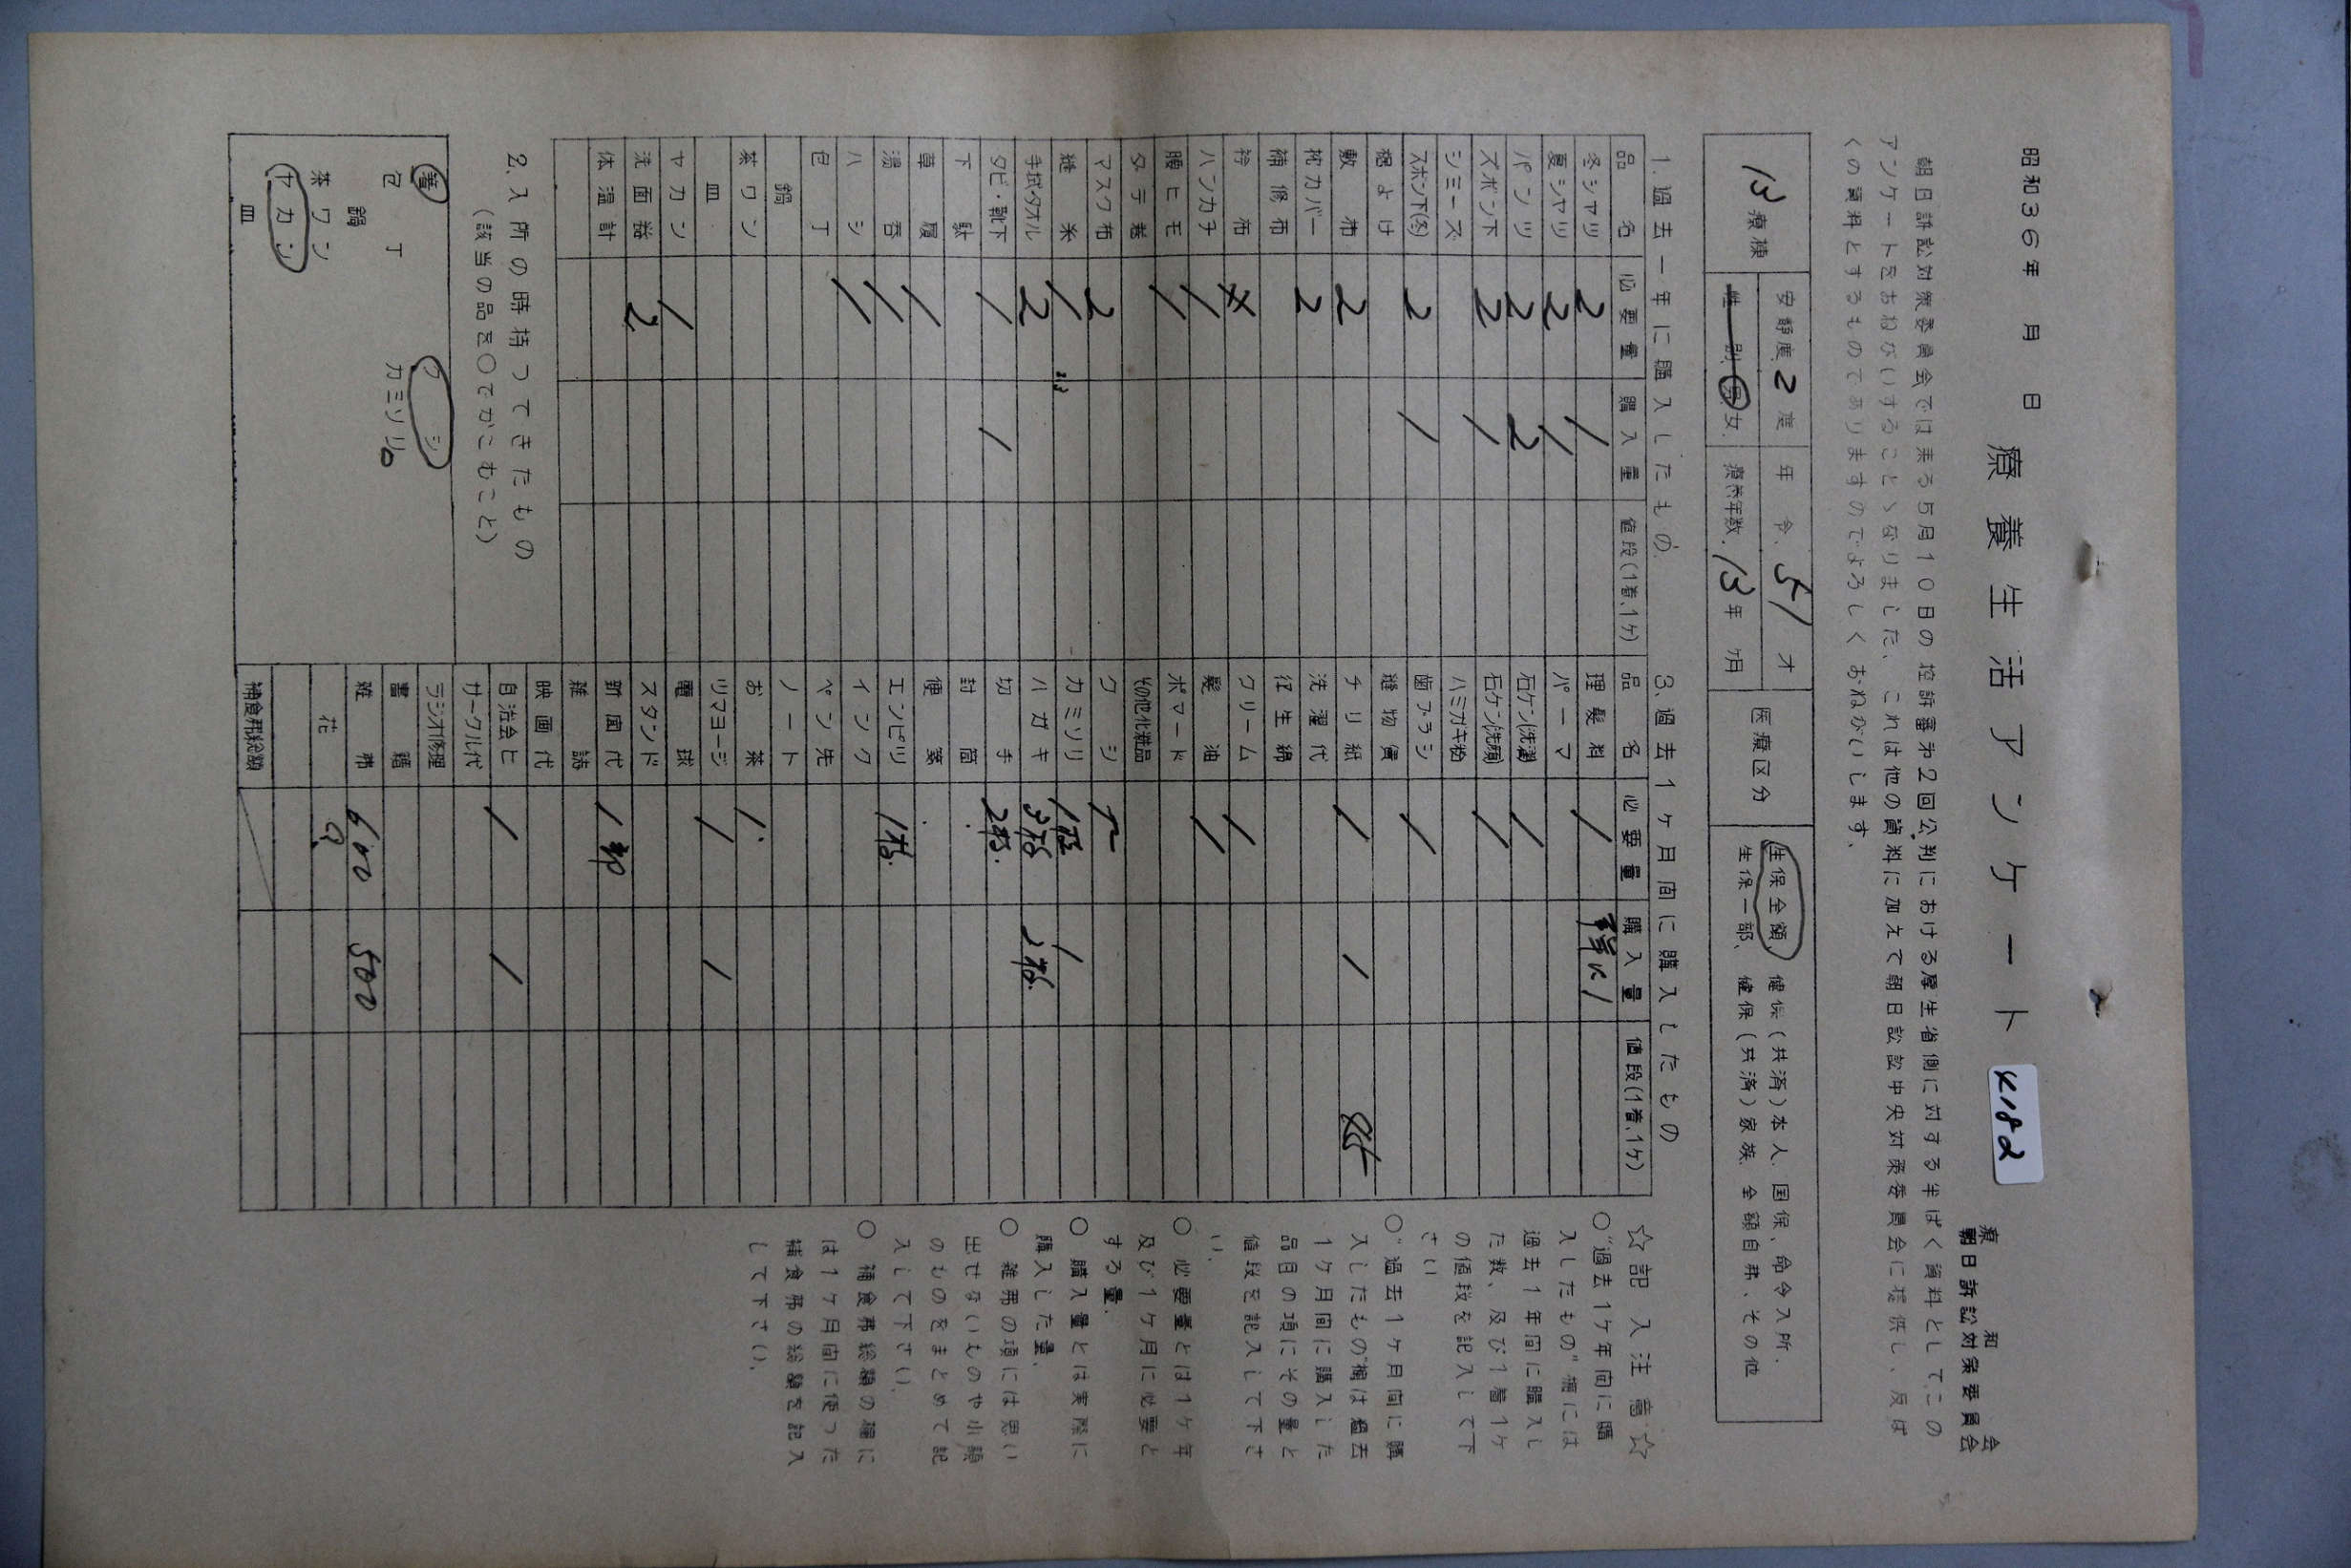 昭和36年　月　日
療養生活アンケート
K182
療和会
朝日訴訟対策委員会
朝日訴訟対策委員会では来る5月10日の控訴審第2回公判における厚生省側に対する半ばく資料としてこの
アンケートをおねがいすることゝなりました、これは他の資料に加えて朝日訴訟中央対策委員会に提供し、反ば
くの資料とするものでありますのでよろしくおねがいします、
13 療棟
安静度 2 度
性別 男 女
年令 51 才
療養年数 13年 ヶ月
医療区分
生保全額、健保(共済)本人、国保、命令入所、
生保一部、健保(共済)家族、全額自弁、その他
1. 過去一年に購入したもの
品名 必要量 購入量 値段(1着、1ヶ)
冬シャツ 2 1
夏シャツ 2 1
パンツ 2 2
ズボン下 2 1
シミーズ
ズボン下(冬) 2 1
寝よけ
敷布 2
枕カバー 2
補修布
衿布
ハンカチ 1
腰ヒモ 1
タテ巻
マスク布 2
縫糸 1
手拭・タオル 2
タビ・靴下 1 1
下駄
草履 1
湯呑 1
ハシ 1
包丁
鍋
茶ワン
皿
ヤカン 1
洗面器 2
体温計
2. 入所の時持ってきたもの
(該当の品を○でかこむこと)
箸 クシ
包丁 カミソリ
鍋
茶ワン
ヤカン
皿
3. 過去1ヶ月間に購入したもの
品名 必要量 購入量 値段(1着、1ヶ)
理髪料 1
パーマ
石ケン(洗濯) 1
石ケン(洗顔) 1
ハミガキ粉
歯ブラシ 1
縫物賃
チリ紙 1 1
洗濯代
衛生綿
クリーム 1
髪油 1
ポマード
その他化粧品
クシ
カミソリ
ハガキ 3枚
切手 2枚
封筒
便箋
エンピツ 1本
インク
ペン先
ノート
お茶 1
ツマヨージ 1 1
電球
スタンド
新聞代 1部
雑誌
映画代
自治会ヒ 1 1
サークル代
ラジオ修理
書籍
雑弗 600 500
花
補食弗総額
☆記入注意☆
○"過去1ヶ年間に購
入したもの"欄には
過去1年間に購入し
た数、及び1着1ヶ
の値段を記入して下
さい
○"過去1ヶ月間に購
入したもの"欄は過去
1ヶ月間に購入した
品目の項にその量と
値段を記入して下さ
い、
○ 必要量とは1ヶ年
及び1ヶ月に必要と
する量、
○ 購入量とは実際に
購入した量、
○ 雑弗の項には思い
出せないものや小額
のものをまとめて記
入して下さい、
○ 補食弗総額の欄に
は1ヶ月間に使った
補食弗の総額を記入
して下さい、